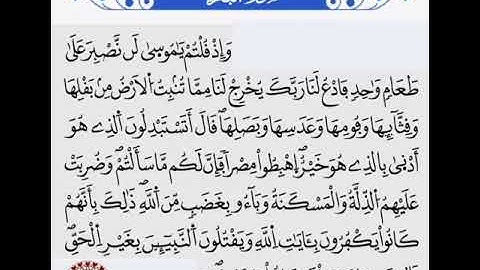 وَإِذْ قُلْتُمْ يَٰمُوسَىٰ لَن نَّصْبِرَ عَلَىٰ
طَعَامٍ وَٰحِدٍ فَادْعُ لَنَا رَبَّكَ يُخْرِجْ لَنَا مِمَّا تُنۢبِتُ اُ۬لَارْضُ مِنۢ بَقْلِهَا
وَقِثَّآئِهَا وَفُومِهَا وَعَدَسِهَا وَبَصَلِهَا قَالَ أَتَسْتَبْدِلُونَ اَ۬لذِے هُوَ
أَدْنَىٰ بِالذِے هُوَ خَيْرٌ اِ۪هْبِطُواْ مِصْراٗ فَإِنَّ لَكُم مَّا سَأَلْتُمْۖ وَضُرِبَتْ
عَلَيْهِمُ اُ۬لذِّلَّةُ وَالْمَسْكَنَةُ وَبَآءُو بِغَضَبٍ مِّنَ اَ۬للَّهِۖ ذَٰلِكَ بِأَنَّهُمْ
كَانُواْ يَكْفُرُونَ بِـَٔايَٰتِ اِ۬للَّهِ وَيَقْتُلُونَ اَ۬لنَّبِيٓـِٕينَ بِغَيْرِ اِ۬لْحَقِّۖ